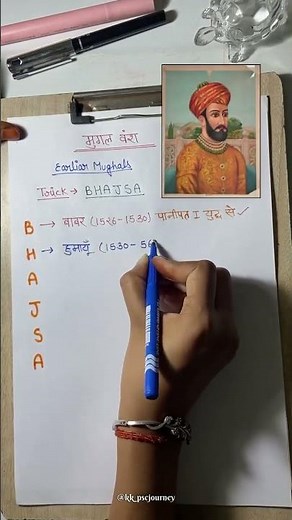 मुगल वंश
Earliar Mughals
Toück → BHAJSA
B → बाबर (1526-1530) पानीपत I युद्ध से ✓
H → हुमायूँ (1530-56
A
J
S
A
@kk_pscjourney